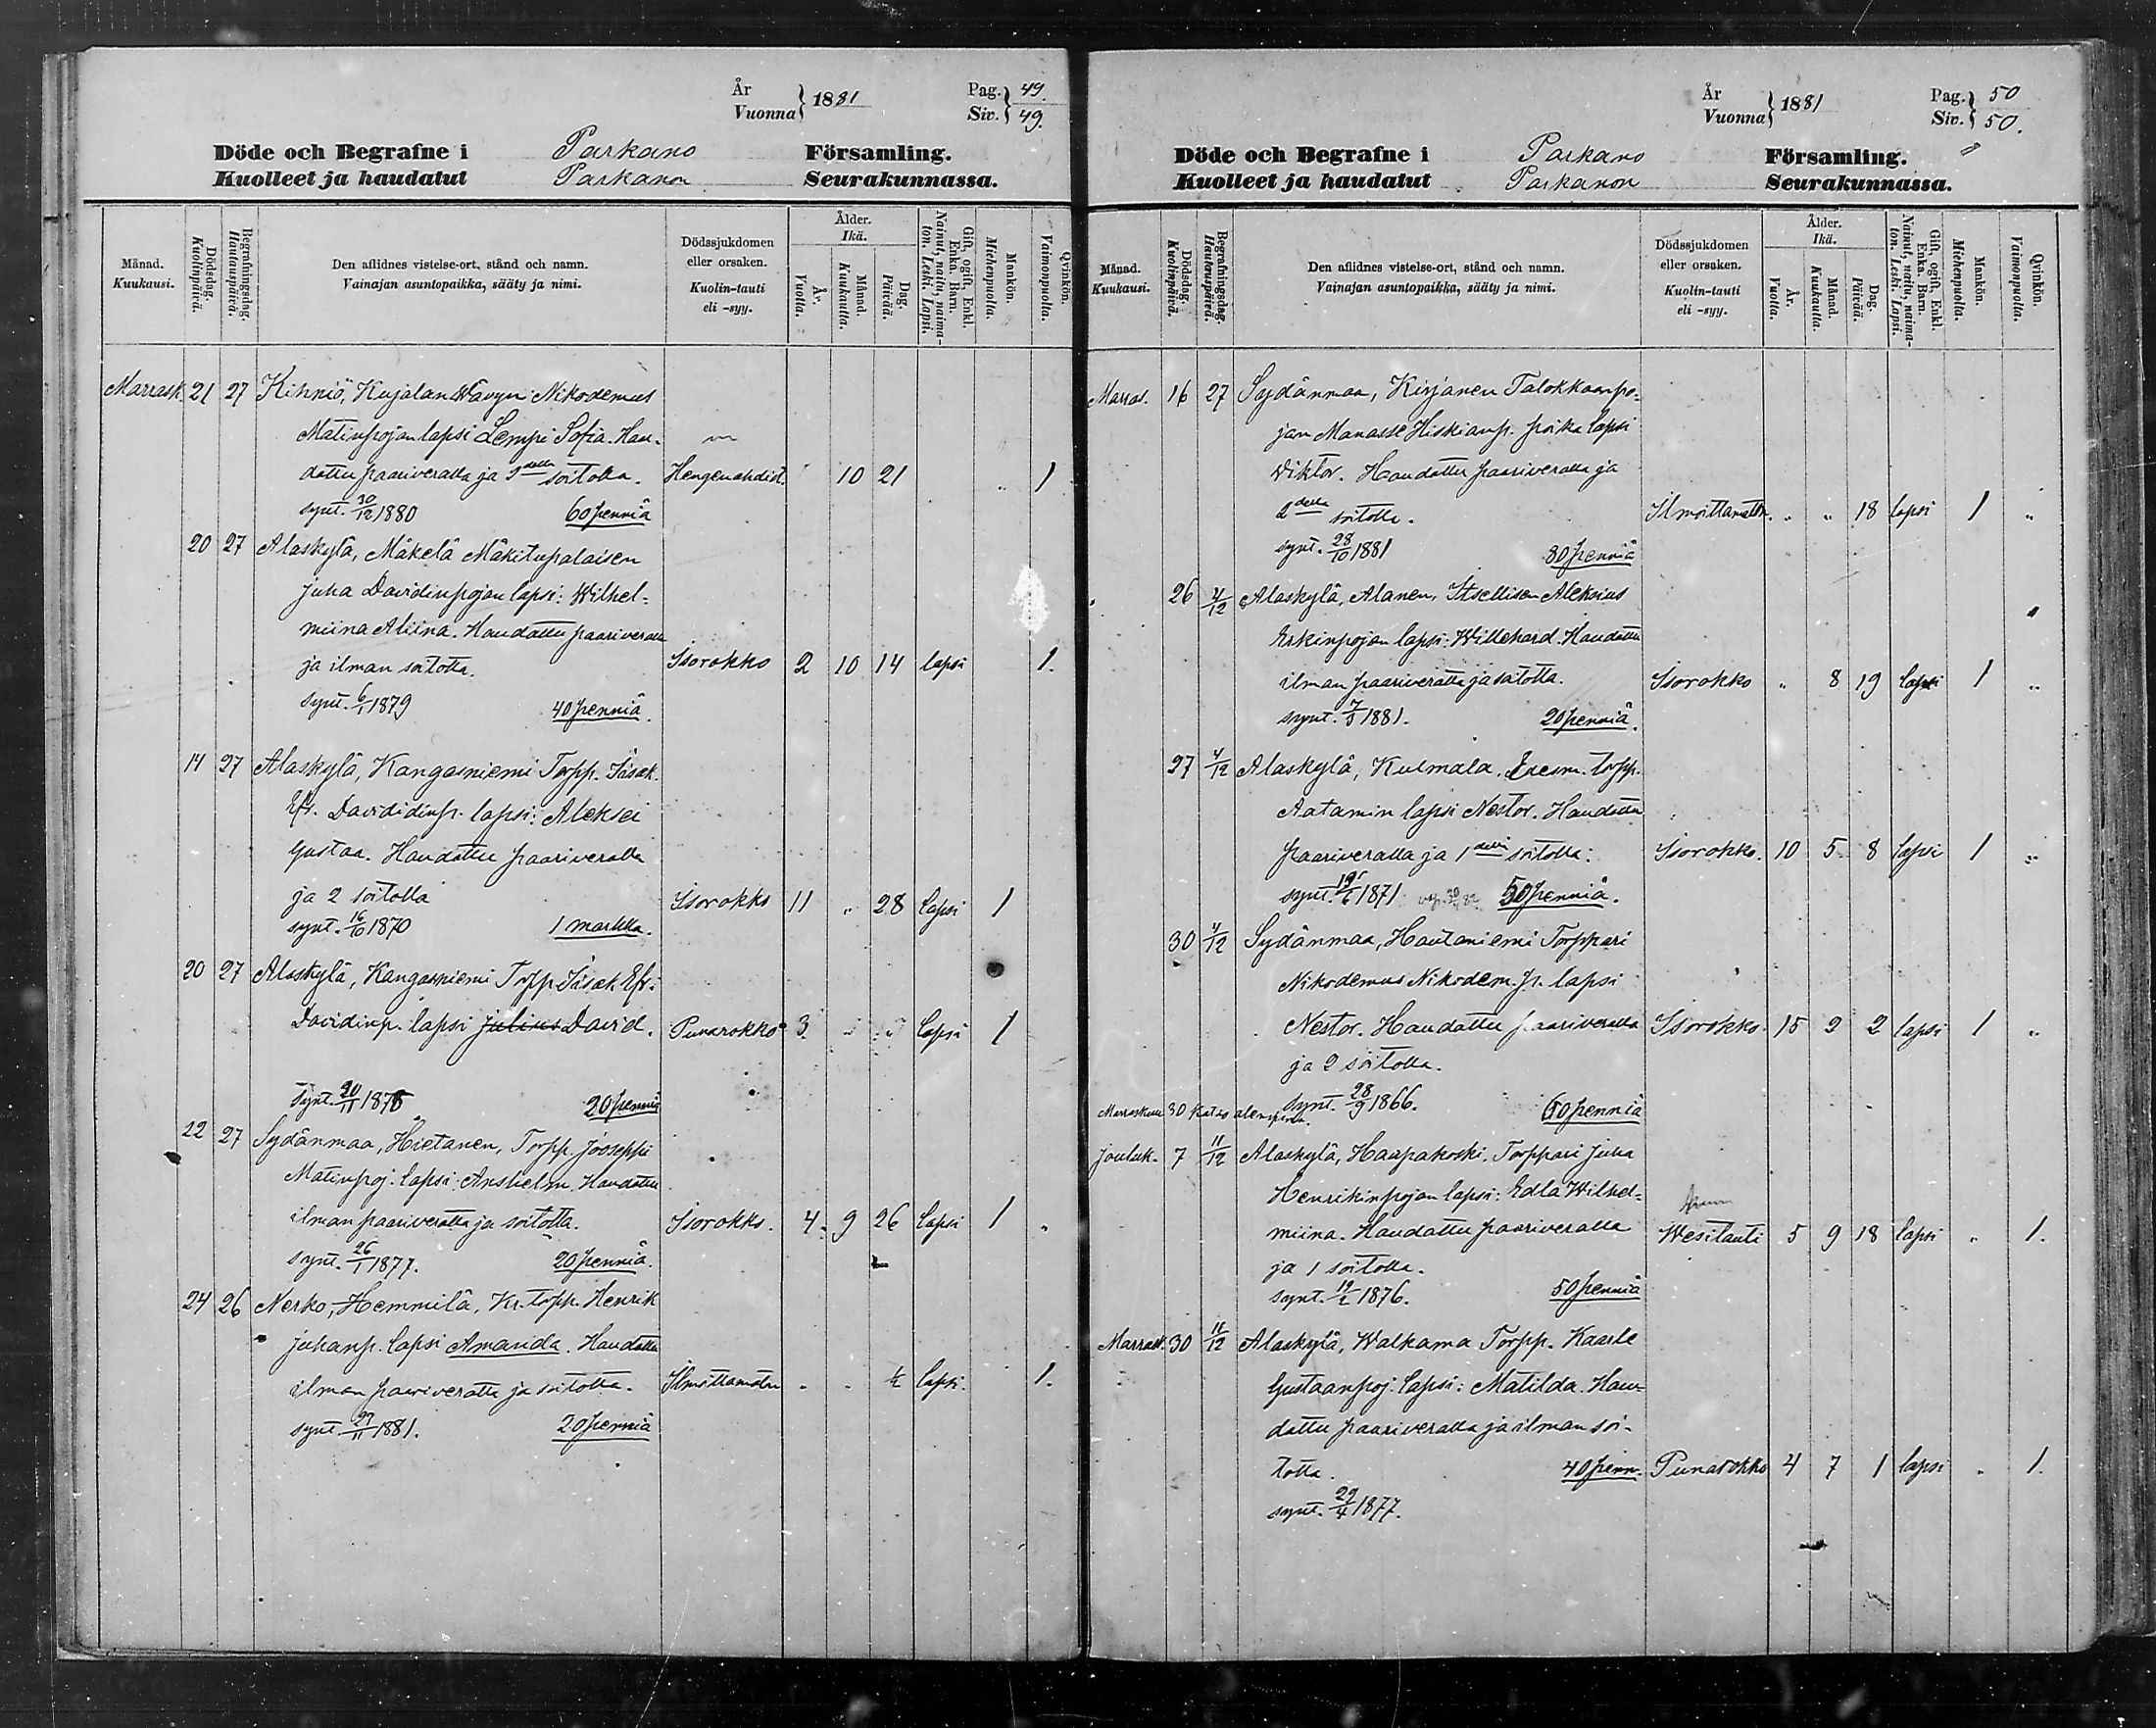 År
Vuonna } 1881
Pag. } 49.
Siv. } 49.
Döde och Begrafne i Parkano Församling.
Kuolleet ja haudatut Parkanon Seurakunnassa.
Månad. Kuukausi.
Dödsdag. Kuolinpäivä.
Begrafningsdag. Hautauspäivä.
Den aflidnes vistelse-ort, stånd och namn.
Vainajan asuntopaikka, sääty ja nimi.
Dödssjukdomen eller orsaken.
Kuolin-tauti eli -syy.
Ålder. Ikä.
År. Vuotta.
Månad. Kuukautta.
Dag. Päivää.
Gift, ogift, Enkl. Enka. Barn.
Nainut, naitu, naimaton. Leski. Lapsi.
Mankön. Miehenpuolta.
Qvinkön. Vaimonpuolta.
Marrask. 21 27 Kihniö, Kujalan Nikodemus
Matinpojan lapsi Lempi Sofia. Hau-
dattu paariveralla ja soitolla. Hengenahdist. 10 21 1
synt. 30/12 1880 60 penniä
20 27 Alaskylä, Mäkelä Mäkitupalaisen
Juha Davidinpojan lapsi: Wilhel-
miina Aliina. Haudattu paariveralla
ja ilman soitotta. Isorokko 2 10 14 lapsi 1.
synt. 6/1 1879 40 penniä.
14 27 Alaskylä, Kangasniemi Torpp. Iisak.
Efr. Davididinp. lapsi: Aleksei
Gustaa. Haudattu paariveralla
ja 2 soitolla Isorokko 11 „ 28 lapsi 1
synt. 16/10 1870 1 markka.
20 27 Alaskylä, Kangasniemi Torpp Iisak Efr.
Davidinp. lapsi Julius David. Punarokko 3 lapsi 1
Synt. 20/11 1878 20 penniä
22 27 Sydänmaa, Hietanen, Torpp. Jooseppi
Matinpoj. lapsi: Anshelm. Haudattu
ilman paariveratta ja soitotta. Isorokko. 4 9 26 lapsi 1 „
synt. 26/1 1877. 20 penniä.
24 26 Nerko, Hemmilä, Kr. torpp. Henrik
Juhanp. lapsi Amanda. Haudattu
ilman paariveratta ja soitotta. Ilmoittamatn ½ lapsi. 1.
synt. /11 1881. 20 penniä
År
Vuonna } 1881
Pag. } 50
Siv. } 50.
Döde och Begrafne i Parkano Församling.
Kuolleet ja haudatut Parkanon Seurakunnassa.
Månad. Kuukausi.
Dödsdag. Kuolinpäivä.
Begrafningsdag. Hautauspäivä.
Den aflidnes vistelse-ort, stånd och namn.
Vainajan asuntopaikka, sääty ja nimi.
Dödssjukdomen eller orsaken.
Kuolin-tauti eli -syy.
Ålder. Ikä.
År. Vuotta.
Månad. Kuukautta.
Dag. Päivää.
Gift, ogift, Enkl. Enka. Barn.
Nainut, naitu, naimaton. Leski. Lapsi.
Mankön. Miehenpuolta.
Qvinkön. Vaimonpuolta.
Marras. 16 27 Sydänmaa, Kirjanen Talokkaanpo-
jan Manasse Hiskianp. poika lapsi
Wiktor. Haudattu paariveralla ja
2della soitolla. Ilmoittamattn. „ „ 18 lapsi 1 „
synt. 28/10 1881 80 penniä
26 4/12 Alaskylä, Alanen, Itsellisen Aleksius
Erkinpojan lapsi: Willehard. Haudattu
ilman paariveratta ja soitotta. Isorokko „ 8 19 lapsi 1 „
synt. 7/3 1881. 20 penniä.
27 4/12 Alaskylä, Kulmala, torpp.
Aatamin lapsi Nestor. Haudattu
paariveralla ja 1della soitolla. Isorokko. 10 5 8 lapsi 1 „
synt. 19/6 1871 50 penniä.
30 4/12 Sydänmaa, Hautaniemi Torppari
Nikodemus Nikodem. p. lapsi
Nestor. Haudattu paariveralla Isorokko. 15 2 2 lapsi 1 „
ja 2 soitolla.
synt. 28/9 1866. 60 penniä
Marraskuu 30 katso alempana.
Jouluk. 7 11/12 Alaskylä, Haapakoski, Torppari Juha
Henrikinpojan lapsi: Edla Wilhel-
miina. Haudattu paariveralla Wesitauti 5 9 18 lapsi „ 1.
ja 1 soitolla.
synt. 19/2 1876. 50 penniä
Marrask. 30 11/12 Alaskylä, Walkama Torpp. Kaarle
Gustaanpoj. lapsi: Matilda. Hau-
dattu paariveralla ja ilman soi-
totta. 40 penn. Punarokko 4 7 1 lapsi „ 1.
synt. 29/4 1877.